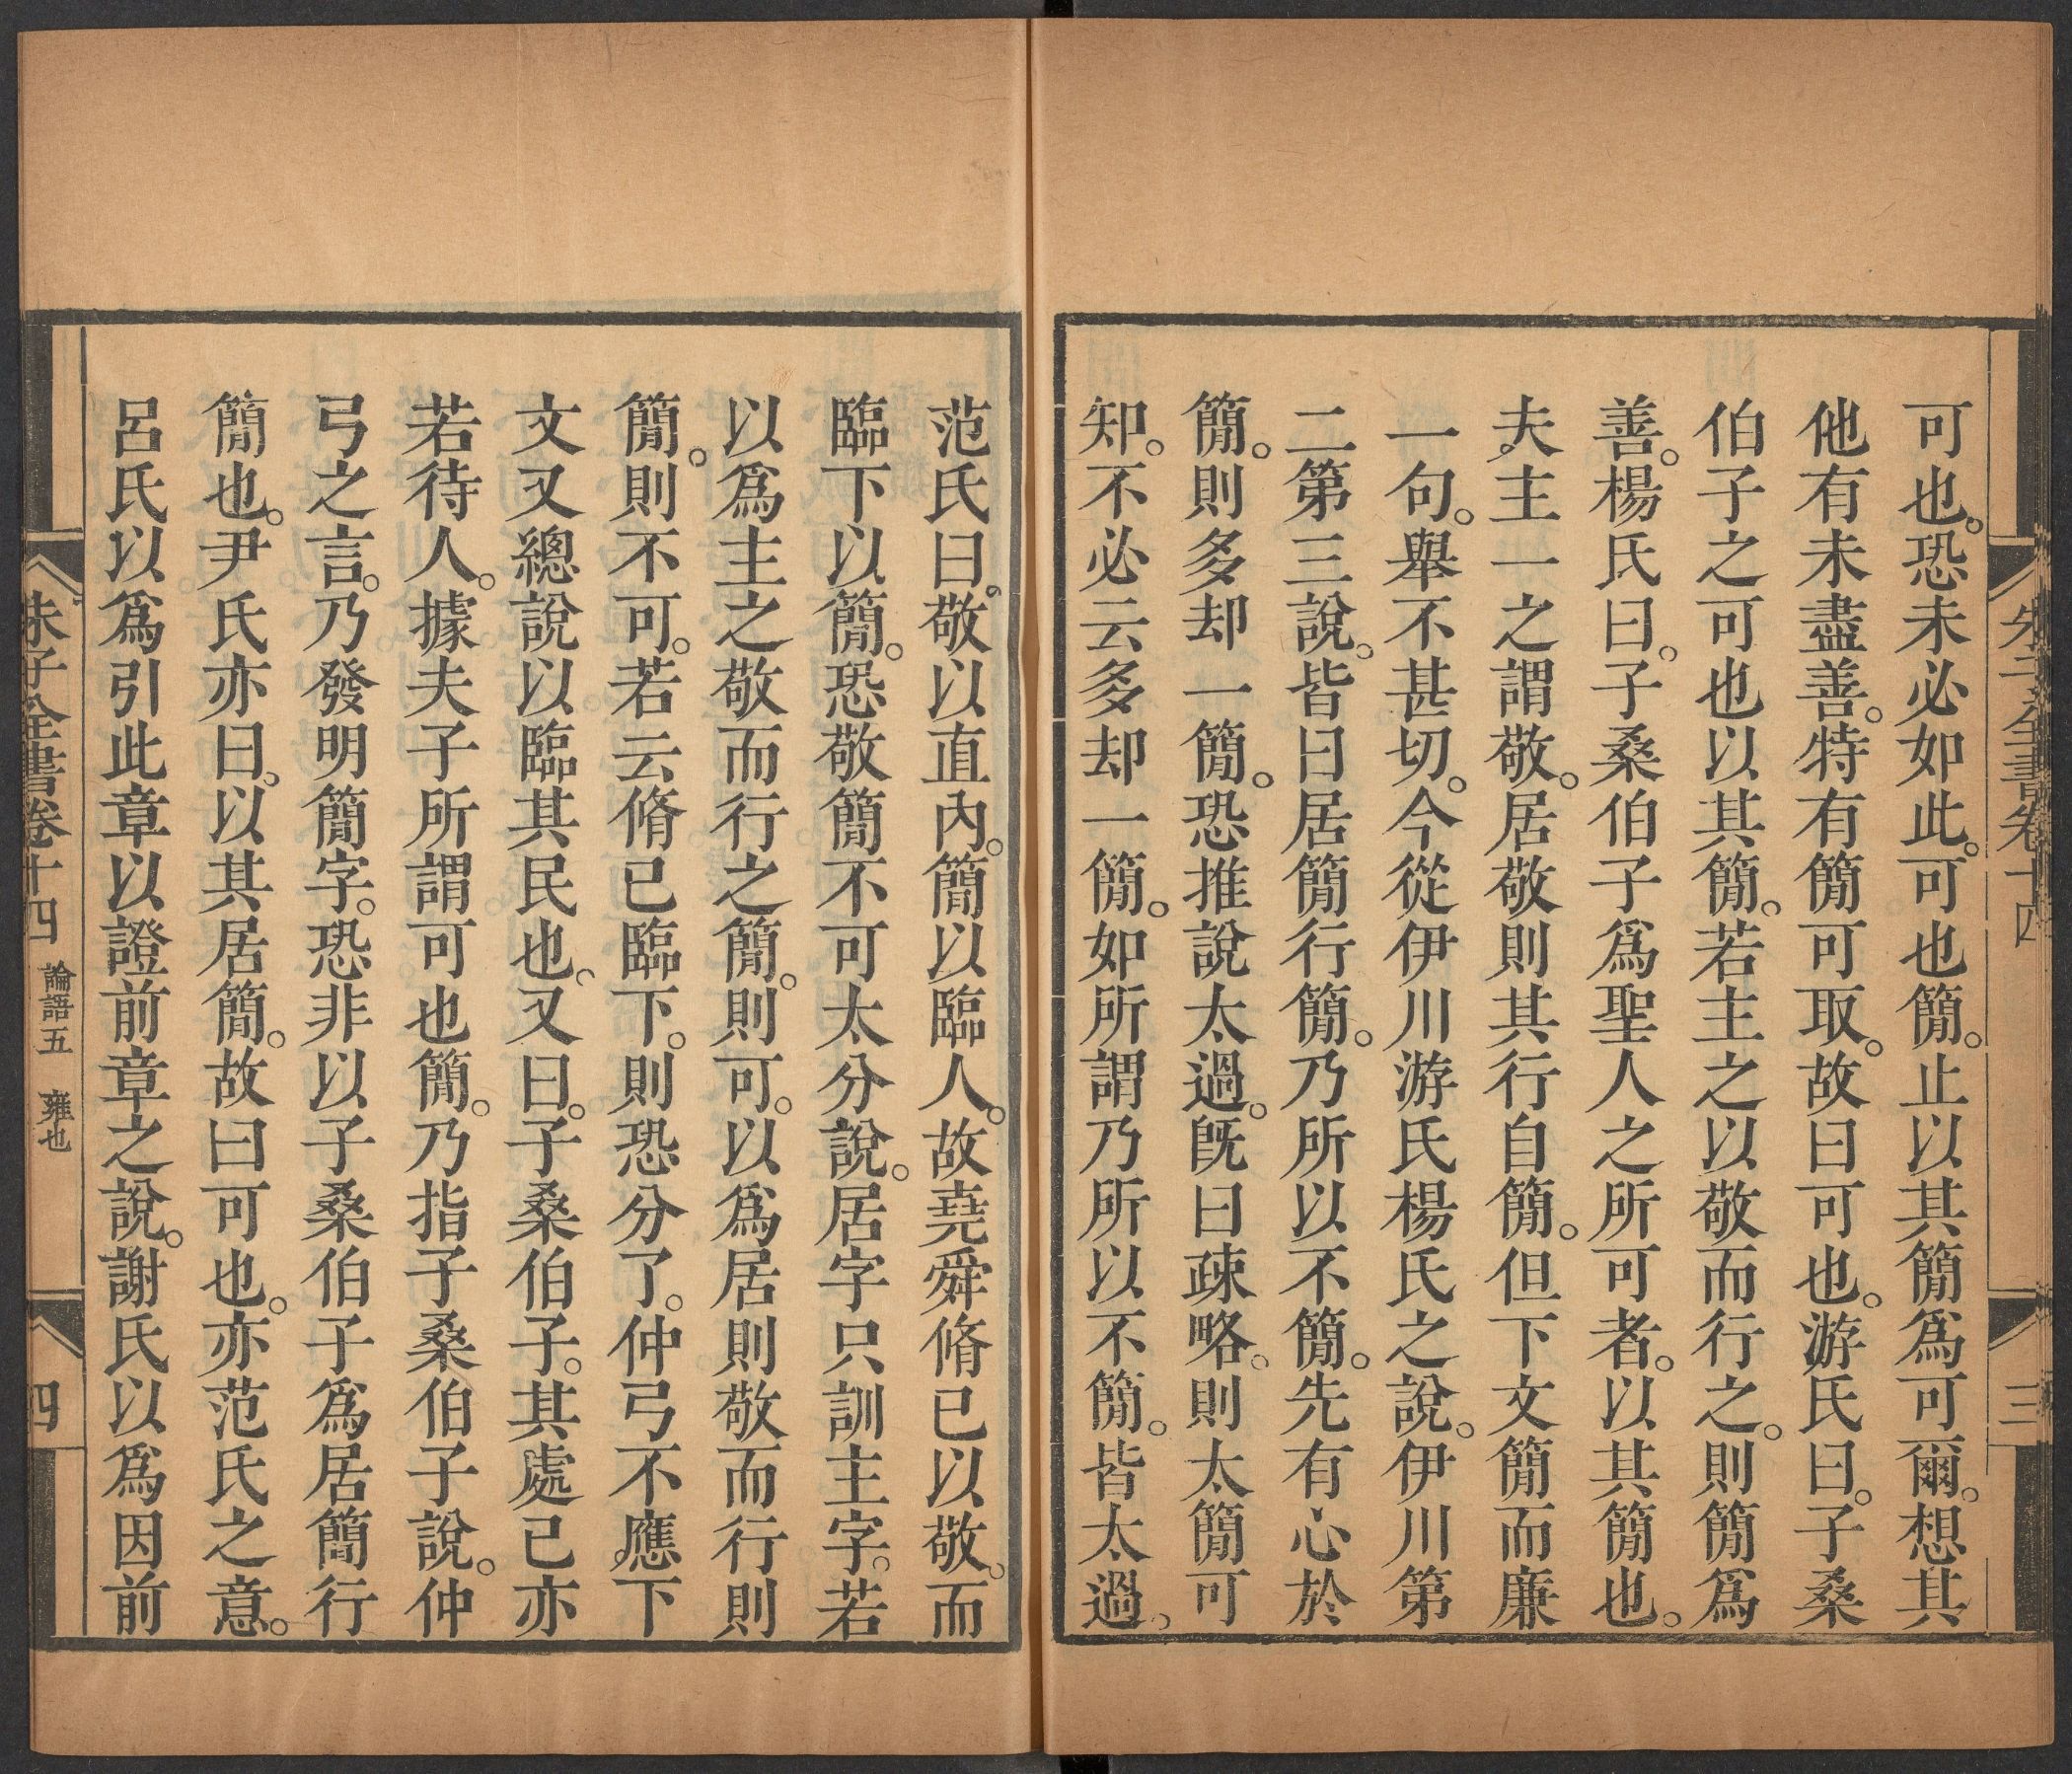 朱子全書卷十四
三
可也。恐未必如此。可也簡。止以其簡爲可爾。想其
他有未盡善。特有簡可取。故曰可也。游氏曰。子桑
伯子之可也以其簡。若主之以敬而行之。則簡爲
善。楊氏曰。子桑伯子爲聖人之所可者。以其簡也。
夫主一之謂敬。居敬則其行自簡。但下文簡而廉
一句。舉不甚切。今從伊川游氏楊氏之說。伊川第
二第三說。皆曰居簡行簡。乃所以不簡。先有心於
簡。則多却一簡。恐推說太過。旣曰疎略。則太簡可
知。不必云多却一簡。如所謂乃所以不簡。皆太過。
范氏曰。敬以直內。簡以臨人。故堯舜脩已以敬。而
臨下以簡。恐敬簡不可太分說。居字只訓主字。若
以爲主之敬而行之簡。則可。以爲居則敬而行則
簡。則不可。若云脩已臨下。則恐分了。仲弓不應下
文又總說以臨其民也。又曰。子桑伯子。其處己亦
若待人。據夫子所謂可也簡。乃指子桑伯子說。仲
弓之言。乃發明簡字。恐非以子桑伯子爲居簡行
簡也。尹氏亦曰。以其居簡。故曰可也。亦范氏之意。
呂氏以爲引此章以證前章之說。謝氏以爲因前
朱子全書卷十四 論語五 雍也
四